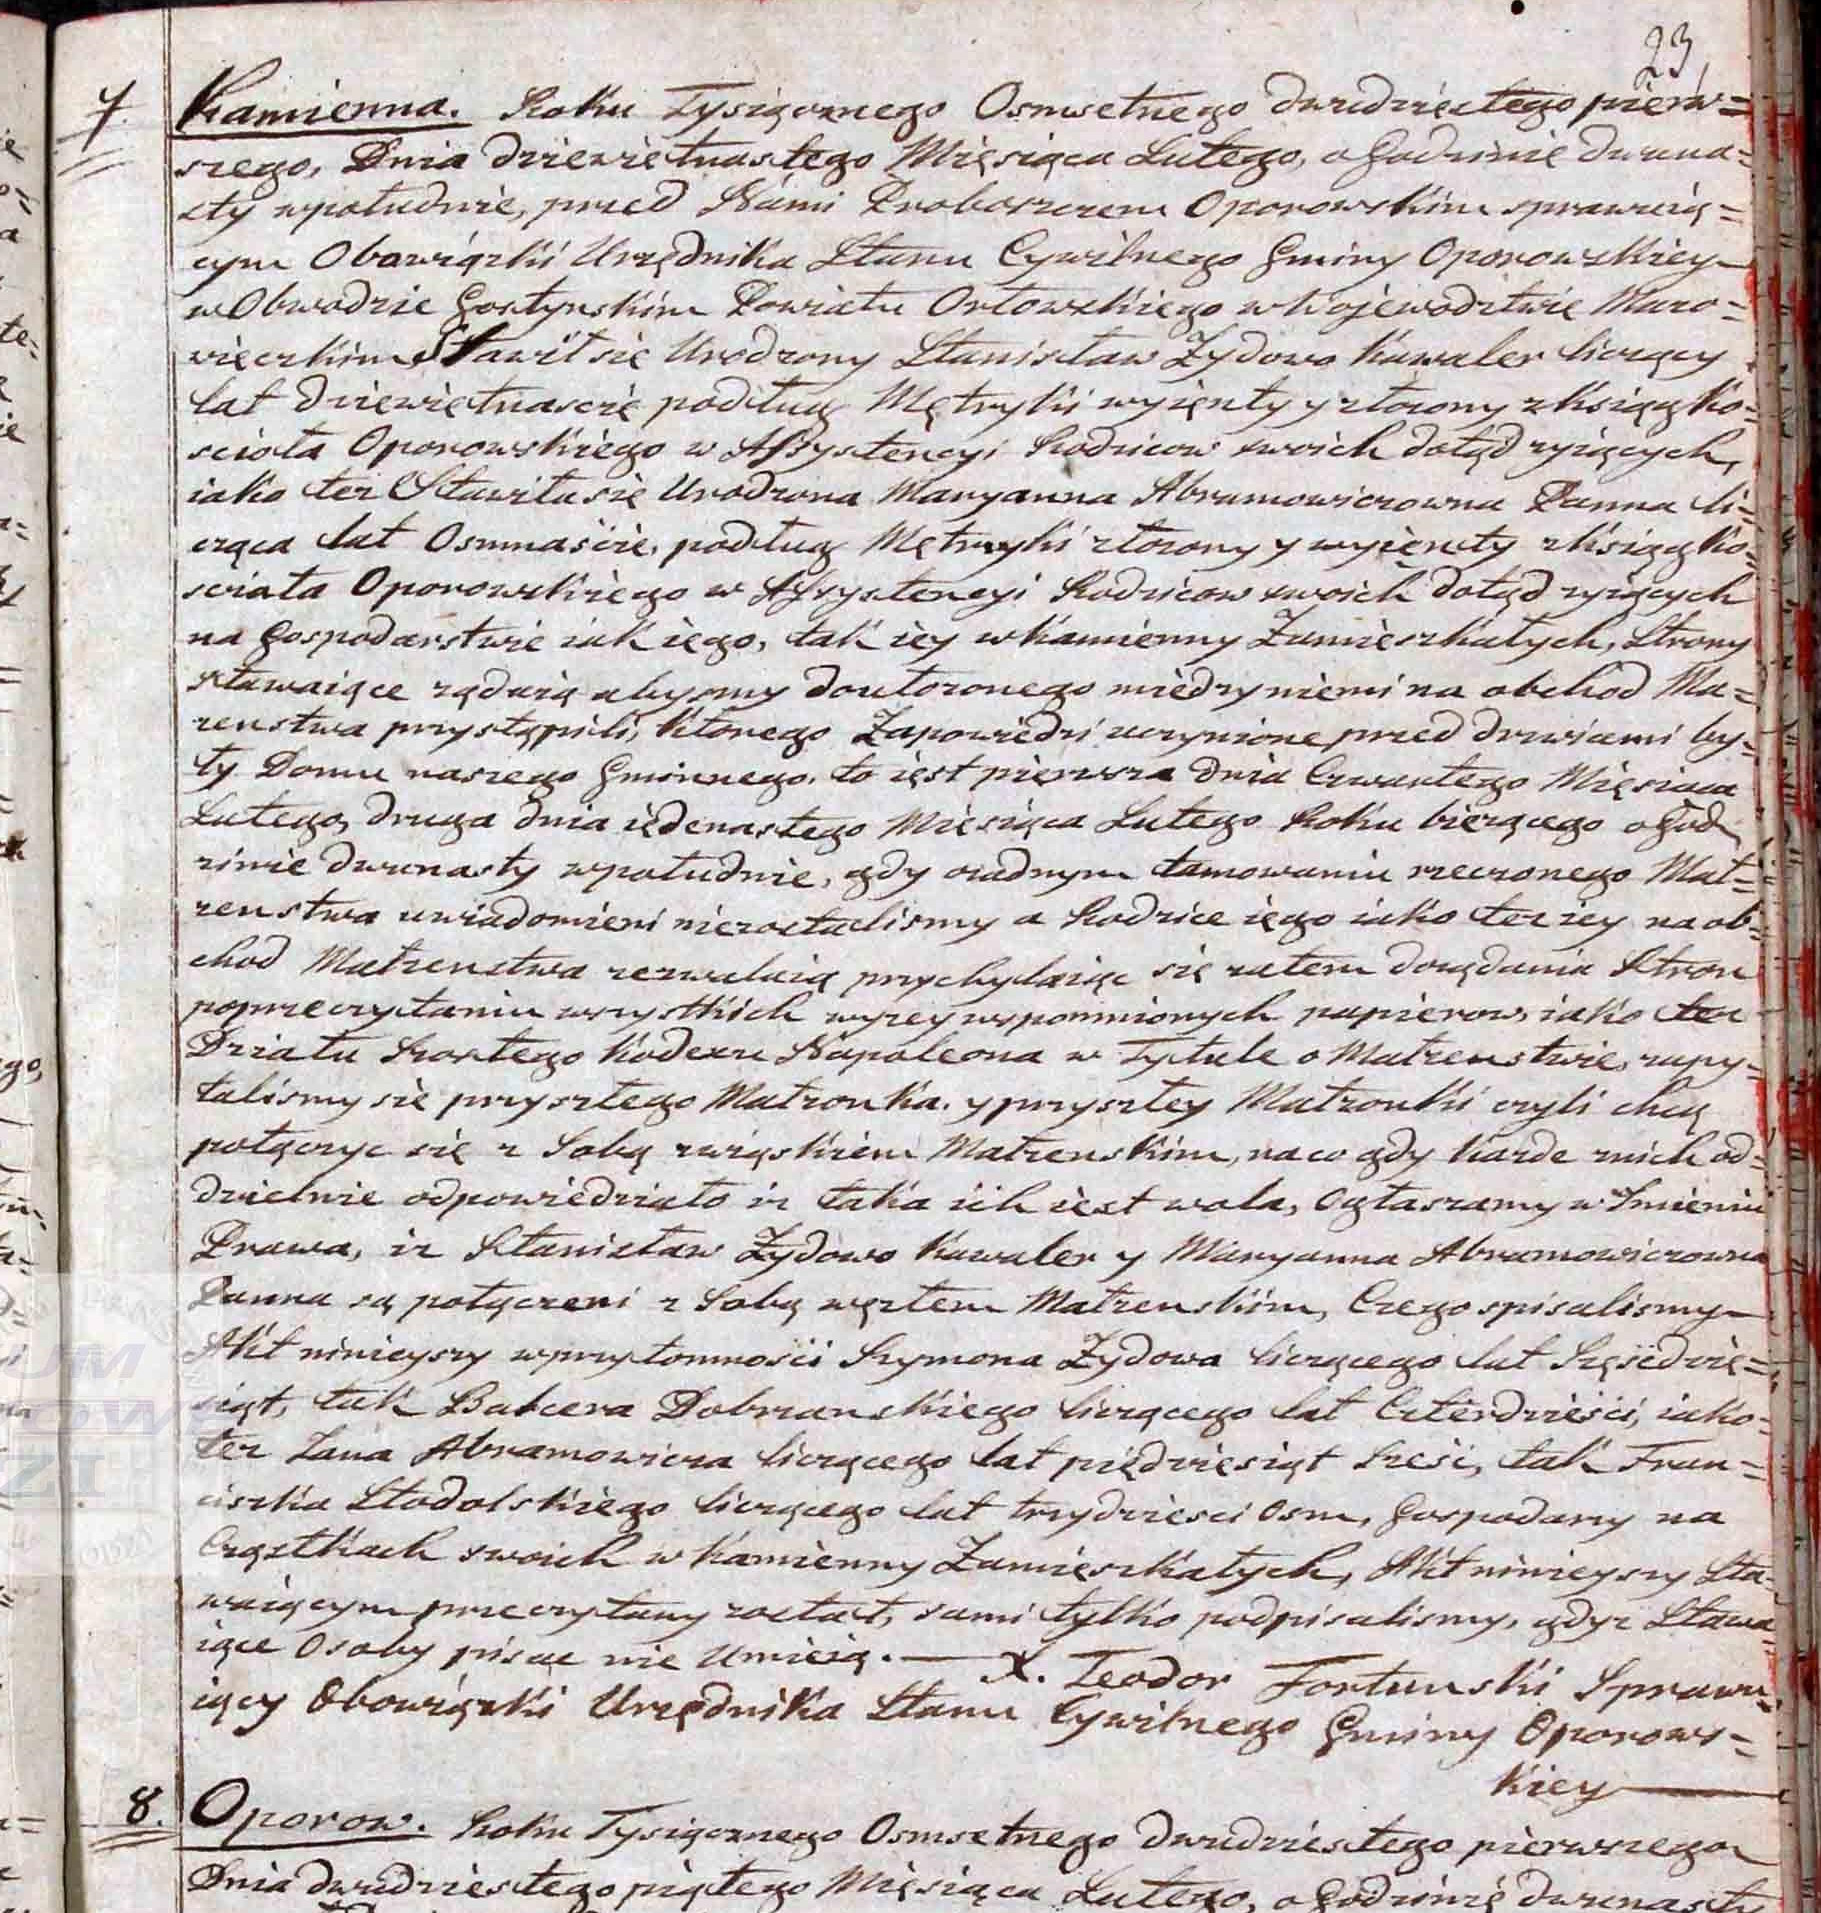 23
7. Kamienna. Roku Tysiącznego Osmsetnego dwudziestego pierw=
szego, Dnia dziewiętnastego Miesiąca Lutego, o Godzinie dwuna=
sty wpołudnie, przed Nami Proboszczem Oporowskim sprawuią=
cym Obowiązki Urzędnika Stanu Cywilnego Gminy Oporowskiey
w Obwodzie Gostynskim Powiatu Orłowskiego w Wojewodztwie Mazo=
wieckim Stawił się Urodzony Stanisław Zydowo Kawaler liczący
lat dziewiętnascie podług Metryki wyięty y złozony z ksiąg Ko=
scioła Oporowskiego w Assystencyi Rodzicow swoich dotąd zyiących,
iako tez Stawiła się Urodzona Maryanna Abramowiczowna Panna li=
cząca lat Osmnaście, podług Metryki złozony y wyięty z ksiąg Ko=
scioła Oporowskiego w Assystencyi Rodzicow swoich dotąd zyiących
na Gospodarstwie iak iego, tak iey w Kamienny Zamieszkałych, Strony
stawaiące ządaią abysmy do ułozonego miedzy niemi na obchod Ma=
zenstwa przystąpili, ktorego Zapowiedzi uczynione przed drzwiami by=
ły Domu naszego Gminnego, to iest pierwsza dnia Czwartego Miesiąca
Lutego, druga dnia iedenastego Miesiąca Lutego Roku biezącego o God
zinie dwunasty wpołudnie, gdy ozadnym tamowaniu rzeczonego Mał=
zenstwa uwiadomieni niezostalismy a Rodzice iego iako tez iey na ob=
chod Małzenstwa zezwalaią przychylaiąc się zatem do ządania Stron
poprzeczytaniu wszystkich wyzey wspomnionych papierow, iako tez
Działu Szostego Kodexu Napoleona w Tytule o Małzenstwie, zapy=
talismy się przyszłego Małzonka y przyszłey Małzonki czyli chcą
połączyc się z Sobą związkiem Małzenskim, na co gdy kazde znich od=
dzielnie odpowiedziało iz taka ich iest wola, Ogłaszamy w Imieniu
Prawa, iz Stanisław Zydowo Kawaler y Maryanna Abramowiczowna
Panna są połączeni z Sobą węzłem Małzenskim, Czego spisalismy
Akt ninieyszy wprzytomności Szymona Zydowa liczącego lat Sześcdzie=
siąt, tak Balcera Dobrzanskiego liczącego lat Czterdzieści, iako=
tez Jana Abramowicza liczącego lat pięcdziesiąt Sześć, tak Fran=
ciszka Stodolskiego liczącego lat trzydziesci Osm, Gospodarzy na
Cząstkach swoich w Kamienny Zamieszkałych, Akt ninieyszy Sta=
waiącym przeczytany został, sami tylko podpisalismy, gdyz Stawa=
iące Osoby pisac nie Umieią. — X. Teodor Fortunski Sprawu=
iący Obowiązki Urzędnika Stanu Cywilnego Gminy Oporows=
kiey
8. Oporow. Roku Tysiącznego Osmsetnego dwudziestego pierwszego
Dnia dwudziestego piątego Miesiąca Lutego, o Godzinie dwunasty